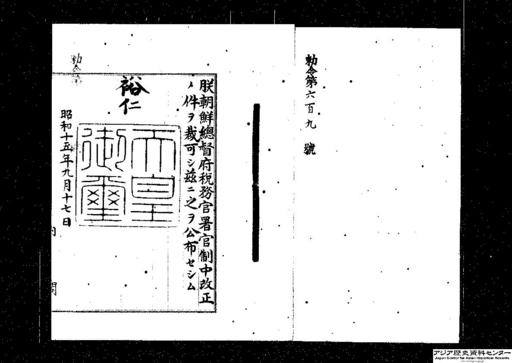 勅令第六百九號
朕朝鮮總督府税務官署官制中改正
ノ件ヲ裁可シ茲ニ之ヲ公布セシム
裕仁
天皇御璽
昭和十五年九月十七日
アジア歴史資料センター
Japan Center for Asian Historical Records